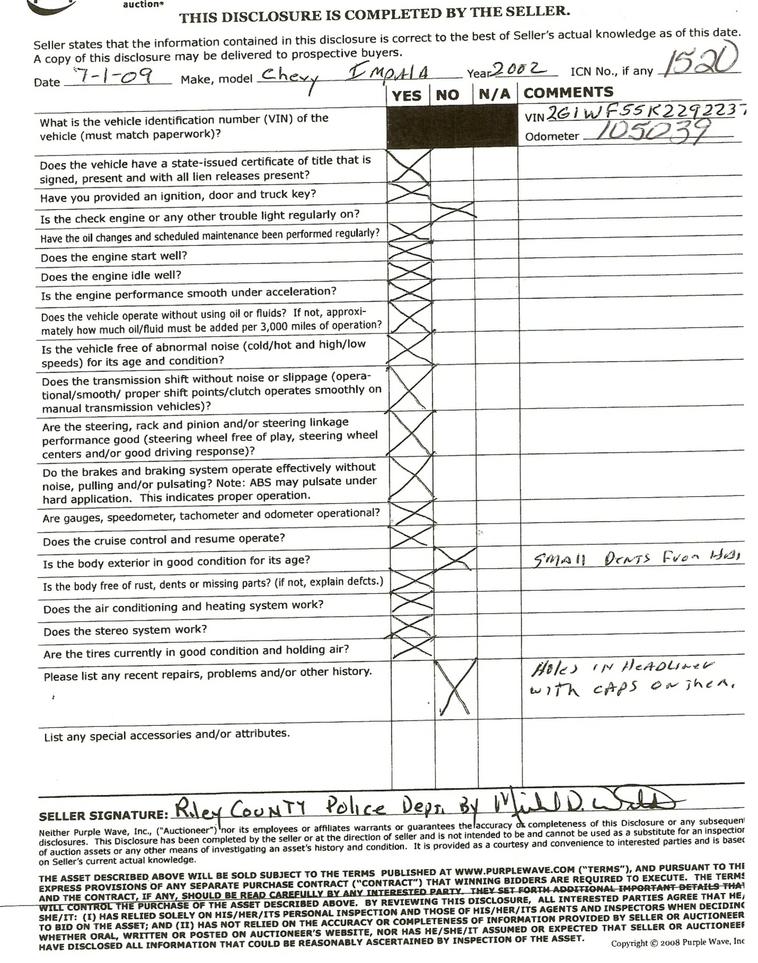 auction*
THIS DISCLOSURE IS COMPLETED BY THE SELLER.
Seller states that the information contained in this disclosure is correct to the best of Seller's actual knowledge as of this date.
A copy of this disclosure may be delivered to prospective buyers.
Date 7-1-09 Make, model Chevy IMPALA Year 2002 ICN No., if any 1520
YES NO N/A COMMENTS
What is the vehicle identification number (VIN) of the
vehicle (must match paperwork)?
VIN 2G1WF55K2292237
Odometer 105039
Does the vehicle have a state-issued certificate of title that is
signed, present and with all lien releases present?
Have you provided an ignition, door and truck key?
Is the check engine or any other trouble light regularly on?
Have the oil changes and scheduled maintenance been performed regularly?
Does the engine start well?
Does the engine idle well?
Is the engine performance smooth under acceleration?
Does the vehicle operate without using oil or fluids? If not, approxi-
mately how much oil/fluid must be added per 3,000 miles of operation?
Is the vehicle free of abnormal noise (cold/hot and high/low
speeds) for its age and condition?
Does the transmission shift without noise or slippage (opera-
tional/smooth/ proper shift points/clutch operates smoothly on
manual transmission vehicles)?
Are the steering, rack and pinion and/or steering linkage
performance good (steering wheel free of play, steering wheel
centers and/or good driving response)?
Do the brakes and braking system operate effectively without
noise, pulling and/or pulsating? Note: ABS may pulsate under
hard application. This indicates proper operation.
Are gauges, speedometer, tachometer and odometer operational?
Does the cruise control and resume operate?
Is the body exterior in good condition for its age?
SMALL DENTS FROM
Is the body free of rust, dents or missing parts? (if not, explain defcts.)
Does the air conditioning and heating system work?
Does the stereo system work?
Are the tires currently in good condition and holding air?
Please list any recent repairs, problems and/or other history.
HOLES IN HEADLINER
WITH CAPS ON THEM.
List any special accessories and/or attributes.
SELLER SIGNATURE: Riley COUNTY Police Dept. By
Neither Purple Wave, Inc., ("Auctioneer") nor its employees or affiliates warrants or guarantees the accuracy or completeness of this Disclosure or any subsequent
disclosures. This Disclosure has been completed by the seller or at the direction of seller and is not intended to be and cannot be used as a substitute for an inspection
of auction assets or any other means of investigating an asset's history and condition. It is provided as a courtesy and convenience to interested parties and is based
on Seller's current actual knowledge.
THE ASSET DESCRIBED ABOVE WILL BE SOLD SUBJECT TO THE TERMS PUBLISHED AT WWW.PURPLEWAVE.COM ("TERMS"), AND PURSUANT TO THE
EXPRESS PROVISIONS OF ANY SEPARATE PURCHASE CONTRACT ("CONTRACT") THAT WINNING BIDDERS ARE REQUIRED TO EXECUTE. THE TERMS
AND THE CONTRACT, IF ANY, SHOULD BE READ CAREFULLY BY ANY INTERESTED PARTY. THEY SET FORTH ADDITIONAL IMPORTANT DETAILS THAT
WILL CONTROL THE PURCHASE OF THE ASSET DESCRIBED ABOVE. BY REVIEWING THIS DISCLOSURE, ALL INTERESTED PARTIES AGREE THAT HE/
SHE/IT: (I) HAS RELIED SOLELY ON HIS/HER/ITS PERSONAL INSPECTION AND THOSE OF HIS/HER/ITS AGENTS AND INSPECTORS WHEN DECIDING
TO BID ON THE ASSET; AND (II) HAS NOT RELIED ON THE ACCURACY OR COMPLETENESS OF INFORMATION PROVIDED BY SELLER OR AUCTIONEER
WHETHER ORAL, WRITTEN OR POSTED ON AUCTIONEER'S WEBSITE, NOR HAS HE/SHE/IT ASSUMED OR EXPECTED THAT SELLER OR AUCTIONEER
HAVE DISCLOSED ALL INFORMATION THAT COULD BE REASONABLY ASCERTAINED BY INSPECTION OF THE ASSET.
Copyright © 2008 Purple Wave, Inc